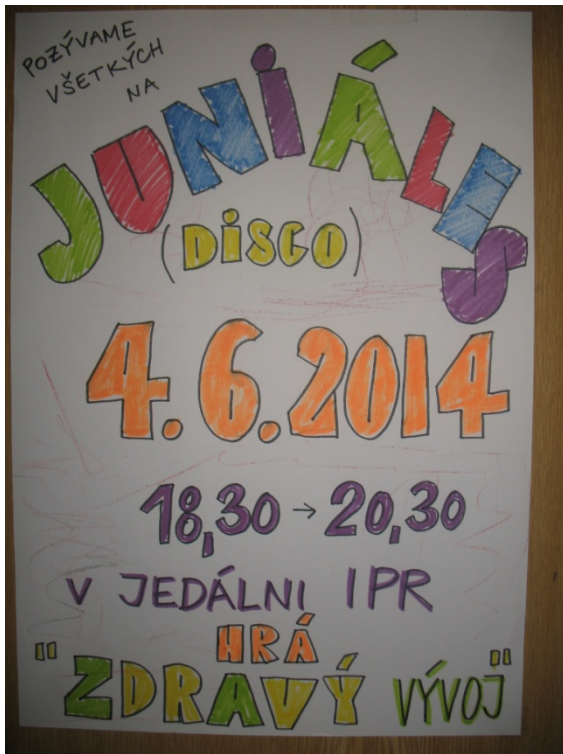 POZÝVAME
VŠETKÝCH
NA
JUNiÁLES
(DiSCO)
4.6.2014
18,30 → 20,30
V JEDÁLNI IPR
HRÁ
"ZDRAVÝ VÝVOJ"